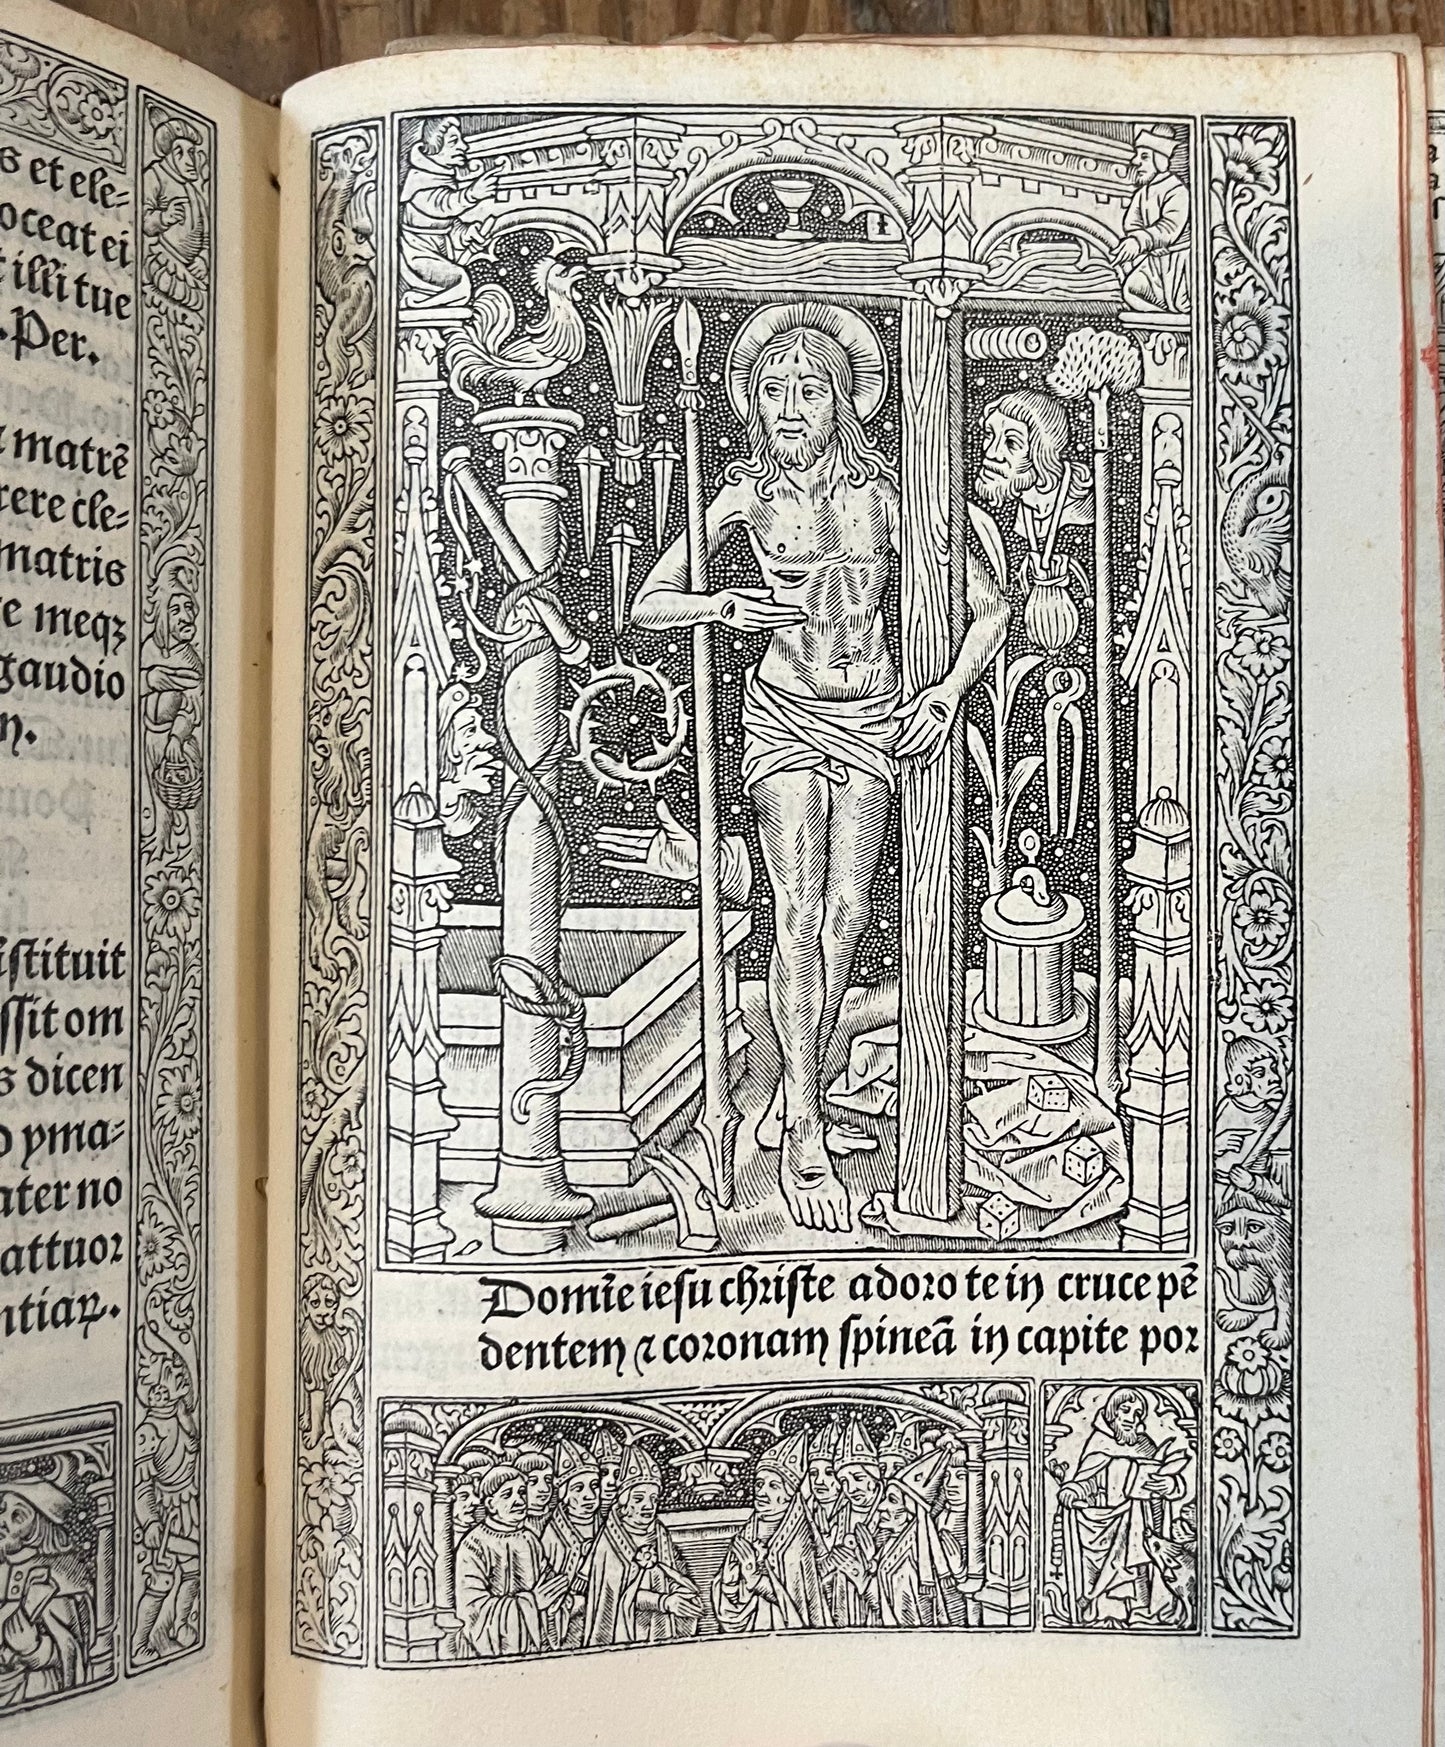 s et ele-
oceat ei
t illi tue
. Per.
a matrē
rere cle-
matris
e meqꝫ
gaudio
n.
istituit
ssit om
s dicen
o yma-
ater no
attuor
ntiaꝝ.
Domīe iesu christe adoro te in cruce pē
dentem ⁊ coronam spineā in capite por